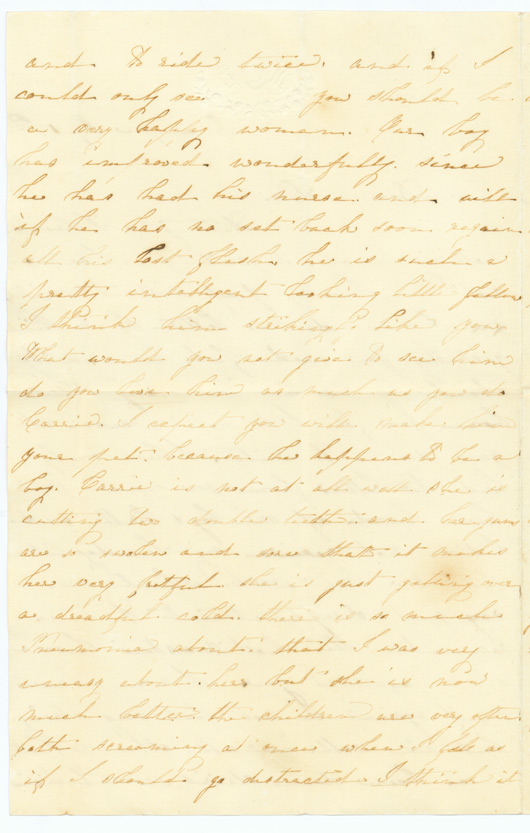 and to ride twice. and if I
could only see you should be
a very happy woman. Our boy
has improved wonderfully since
he has had his nurse and will
if he has no set back soon regain
all his lost flesh he is such a
pretty intelligent looking little fellow
I think him strikingly like you
What would you not give to see him
do you love him as much as you do
Carrie. I expect you will make him
your pet. because he happens to be a
boy. Carrie is not at all well she is
cutting two double teeth. and her gums
are so swolen and sore that it makes
her very fretful she is just getting over
a dreadful cold. there is so much
Pneumonia about. that I was very
uneasy about her but she is now
much better. the children are very often
both screaming at once when I feel as
if I should go distracted I think it